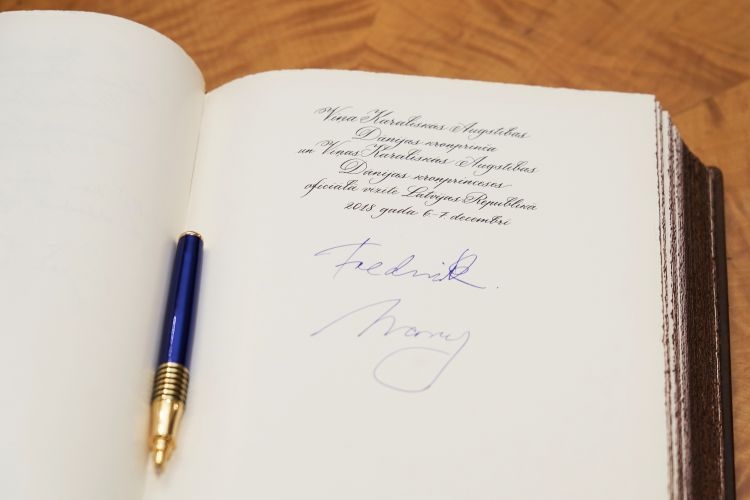 Viņa Karaliskās Augstības
Dānijas kronprinča
un Viņas Karaliskās Augstības
Dānijas kronprinceses
oficiālā vizīte Latvijas Republikā
2018. gada 6.-7. decembrī
Frederik
Mary